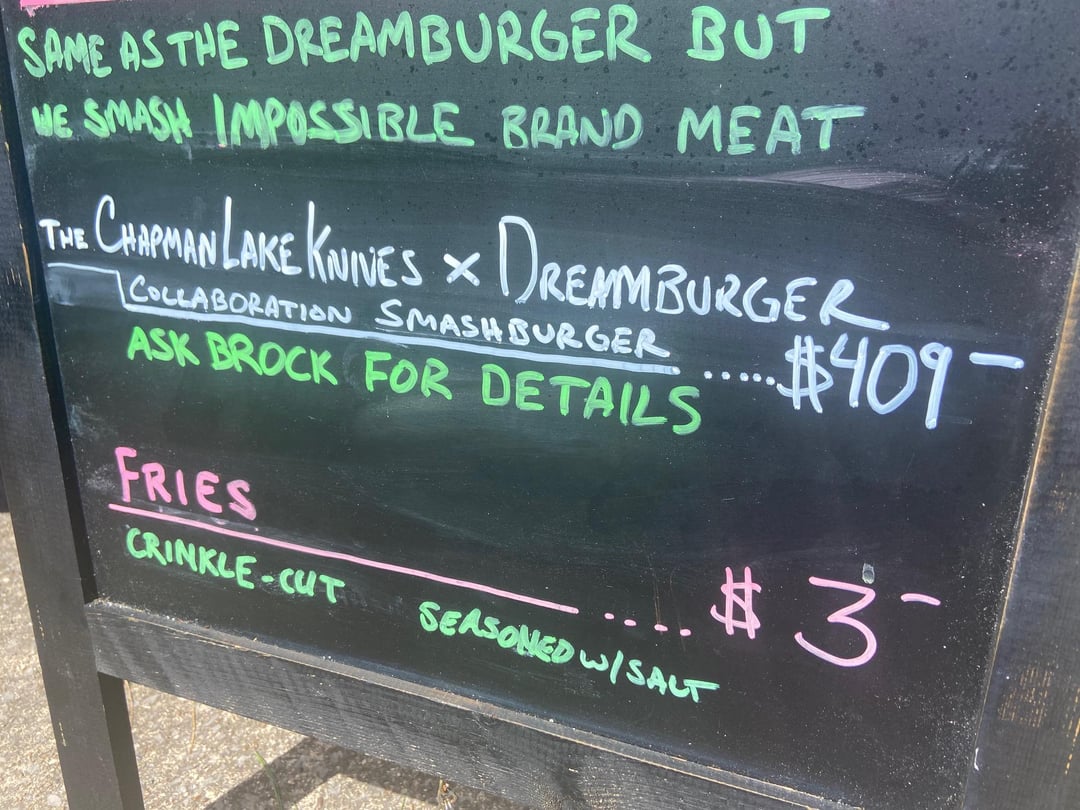 SAME AS THE DREAMBURGER BUT
WE SMASH IMPOSSIBLE BRAND MEAT
THE CHAPMAN LAKE KNIVES X DREAMBURGER
COLLABORATION SMASHBURGER ..... $409-
ASK BROCK FOR DETAILS
FRIES
CRINKLE-CUT .... $3-
SEASONED W/SALT